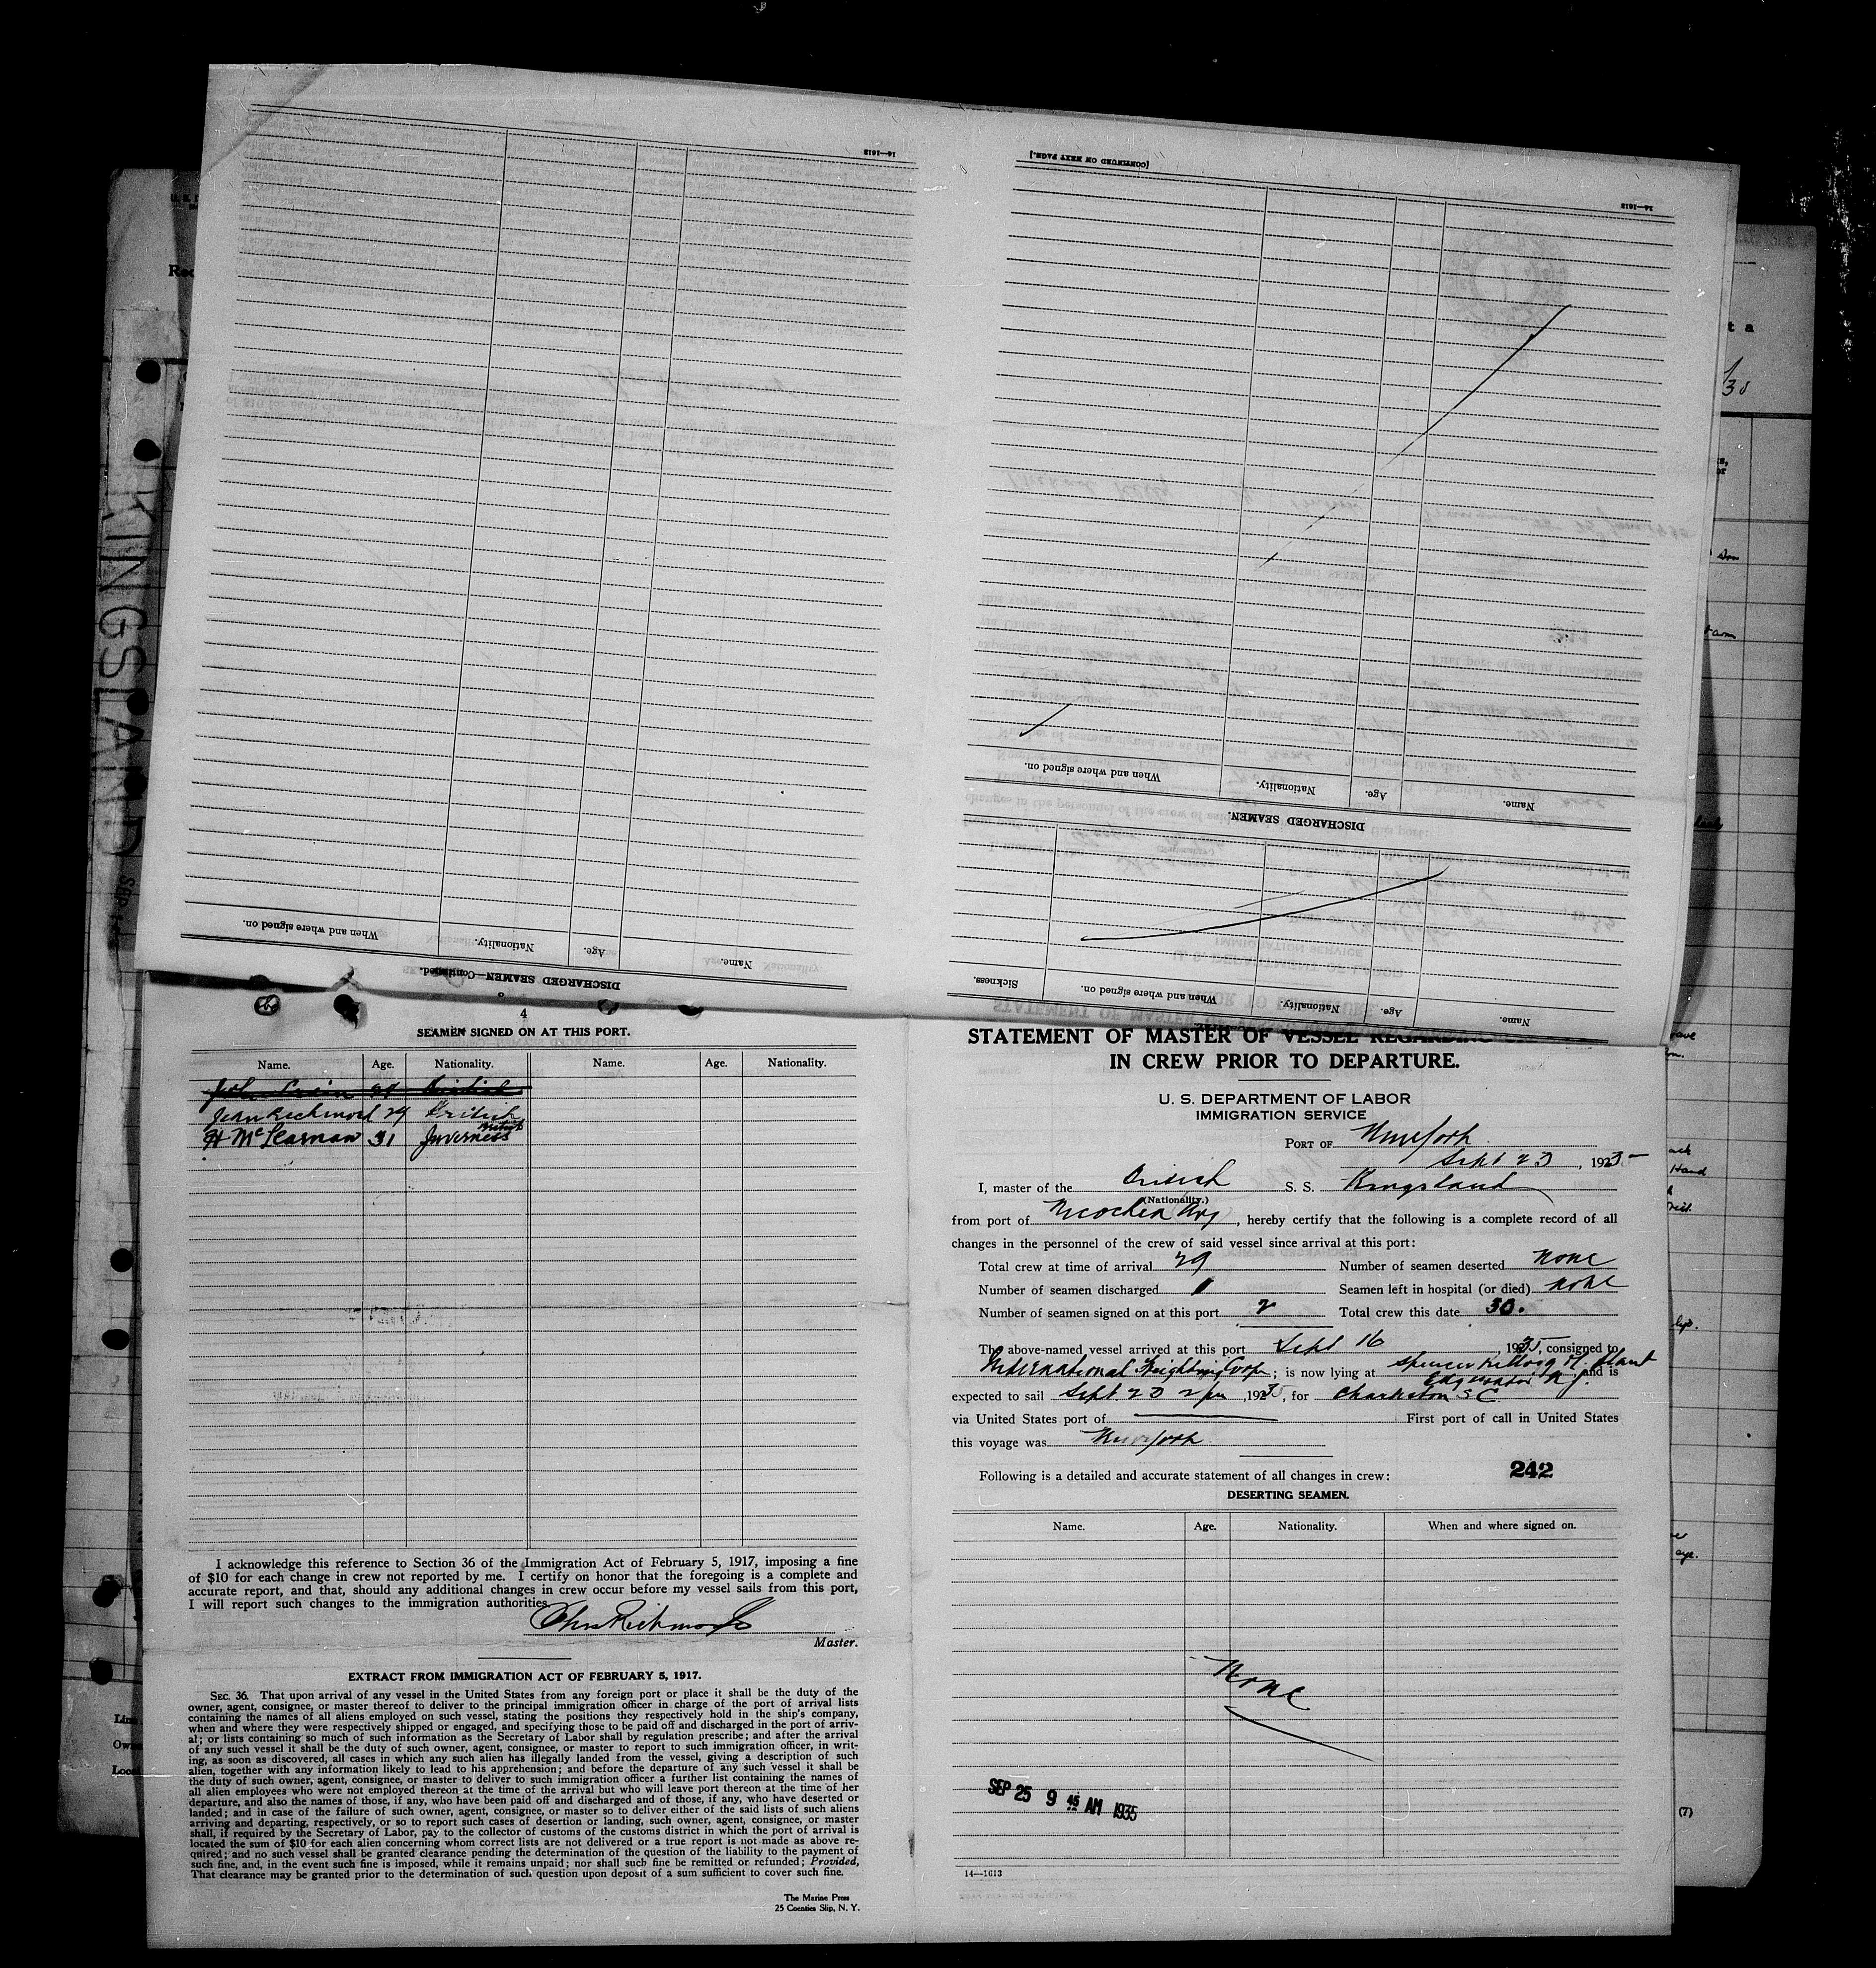 14—1613
[CONTINUED ON NEXT PAGE.]
14—1613
KINGSLAND
When and where signed on. Nationality. Age. Name.
DISCHARGED SEAMEN.
When and where signed on. Nationality. Age. Name.
DISCHARGED SEAMEN—Continued.
Sickness. When and where signed on. Nationality. Age. Name.
4
SEAMEN SIGNED ON AT THIS PORT.
Name. Age. Nationality. Name. Age. Nationality.
Jean Richmond 29 British
H McLearnan 31 Inverness British
I acknowledge this reference to Section 36 of the Immigration Act of February 5, 1917, imposing a fine
of $10 for each change in crew not reported by me. I certify on honor that the foregoing is a complete and
accurate report, and that, should any additional changes in crew occur before my vessel sails from this port,
I will report such changes to the immigration authorities.
Master.
EXTRACT FROM IMMIGRATION ACT OF FEBRUARY 5, 1917.
SEC. 36. That upon arrival of any vessel in the United States from any foreign port or place it shall be the duty of the
owner, agent, consignee, or master thereof to deliver to the principal immigration officer in charge of the port of arrival lists
containing the names of all aliens employed on such vessel, stating the positions they respectively hold in the ship's company,
when and where they were respectively shipped or engaged, and specifying those to be paid off and discharged in the port of arriv-
al; or lists containing so much of such information as the Secretary of Labor shall by regulation prescribe; and after the arrival
of any such vessel it shall be the duty of such owner, agent, consignee, or master to report to such immigration officer, in writ-
ing, as soon as discovered, all cases in which any such alien has illegally landed from the vessel, giving a description of such
alien, together with any information likely to lead to his apprehension; and before the departure of any such vessel it shall be
the duty of such owner, agent, consignee, or master to deliver to such immigration officer a further list containing the names of
all alien employees who were not employed thereon at the time of the arrival but who will leave port thereon at the time of her
departure, and also the names of those, if any, who have been paid off and discharged and of those, if any, who have deserted or
landed; and in case of the failure of such owner, agent, consignee, or master so to deliver either of the said lists of such aliens
arriving and departing, respectively, or so to report such cases of desertion or landing, such owner, agent, consignee, or master
shall, if required by the Secretary of Labor, pay to the collector of customs of the customs district in which the port of arrival is
located the sum of $10 for each alien concerning whom correct lists are not delivered or a true report is not made as above re-
quired; and no such vessel shall be granted clearance pending the determination of the question of the liability to the payment of
such fine, and, in the event such fine is imposed, while it remains unpaid; nor shall such fine be remitted or refunded; Provided,
That clearance may be granted prior to the determination of such question upon deposit of a sum sufficient to cover such fine.
The Marine Press
25 Coenties Slip, N. Y.
STATEMENT OF MASTER OF VESSEL REGARDING
IN CREW PRIOR TO DEPARTURE.
U. S. DEPARTMENT OF LABOR
IMMIGRATION SERVICE
PORT OF New York
Sept 23, 1935
I, master of the British S. S. Kingsland
(Nationality.)
from port of Necochea Arg, hereby certify that the following is a complete record of all
changes in the personnel of the crew of said vessel since arrival at this port:
Total crew at time of arrival 29 Number of seamen deserted None
Number of seamen discharged 1 Seamen left in hospital (or died) None
Number of seamen signed on at this port 2 Total crew this date 30.
The above-named vessel arrived at this port Sept 16, 1935, consigned to
International Freighting Corp; is now lying at Spencer Kellogg Plant Edgewater N J. and is
expected to sail Sept. 23 2 pm, 1935, for Charleston S C
via United States port of First port of call in United States
this voyage was New York
Following is a detailed and accurate statement of all changes in crew:
242
DESERTING SEAMEN.
Name. Age. Nationality. When and where signed on.
None
SEP 25 9 45 AM 1935
14—1613
(7)